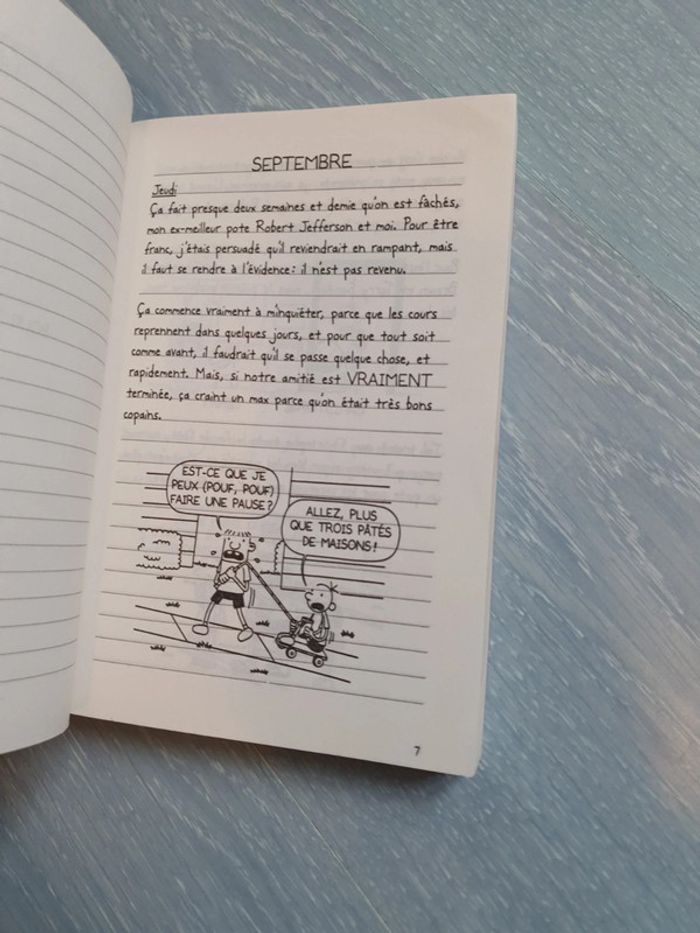 SEPTEMBRE
Jeudi
Ça fait presque deux semaines et demie qu'on est fâchés,
mon ex-meilleur pote Robert Jefferson et moi. Pour être
franc, j'étais persuadé qu'il reviendrait en rampant, mais
il faut se rendre à l'évidence : il n'est pas revenu.
Ça commence vraiment à m'inquiéter, parce que les cours
reprennent dans quelques jours, et pour que tout soit
comme avant, il faudrait qu'il se passe quelque chose, et
rapidement. Mais, si notre amitié est VRAIMENT
terminée, ça craint un max parce qu'on était très bons
copains.
EST-CE QUE JE
PEUX (POUF, POUF)
FAIRE UNE PAUSE ?
ALLEZ, PLUS
QUE TROIS PÂTÉS
DE MAISONS !
7